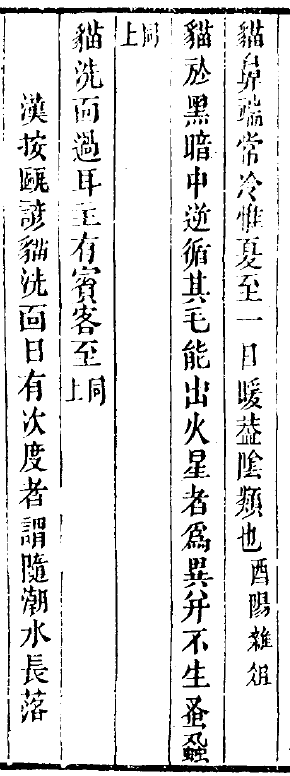 貓鼻端常冷惟夏至一日暖葢陰類也酉陽雜俎
貓於黑暗中逆循其毛能出火星者爲異并不生蚤蝨
同上
貓洗面過耳主有賓客至同上
漢按甌諺貓洗面日有次度者謂隨潮水長落